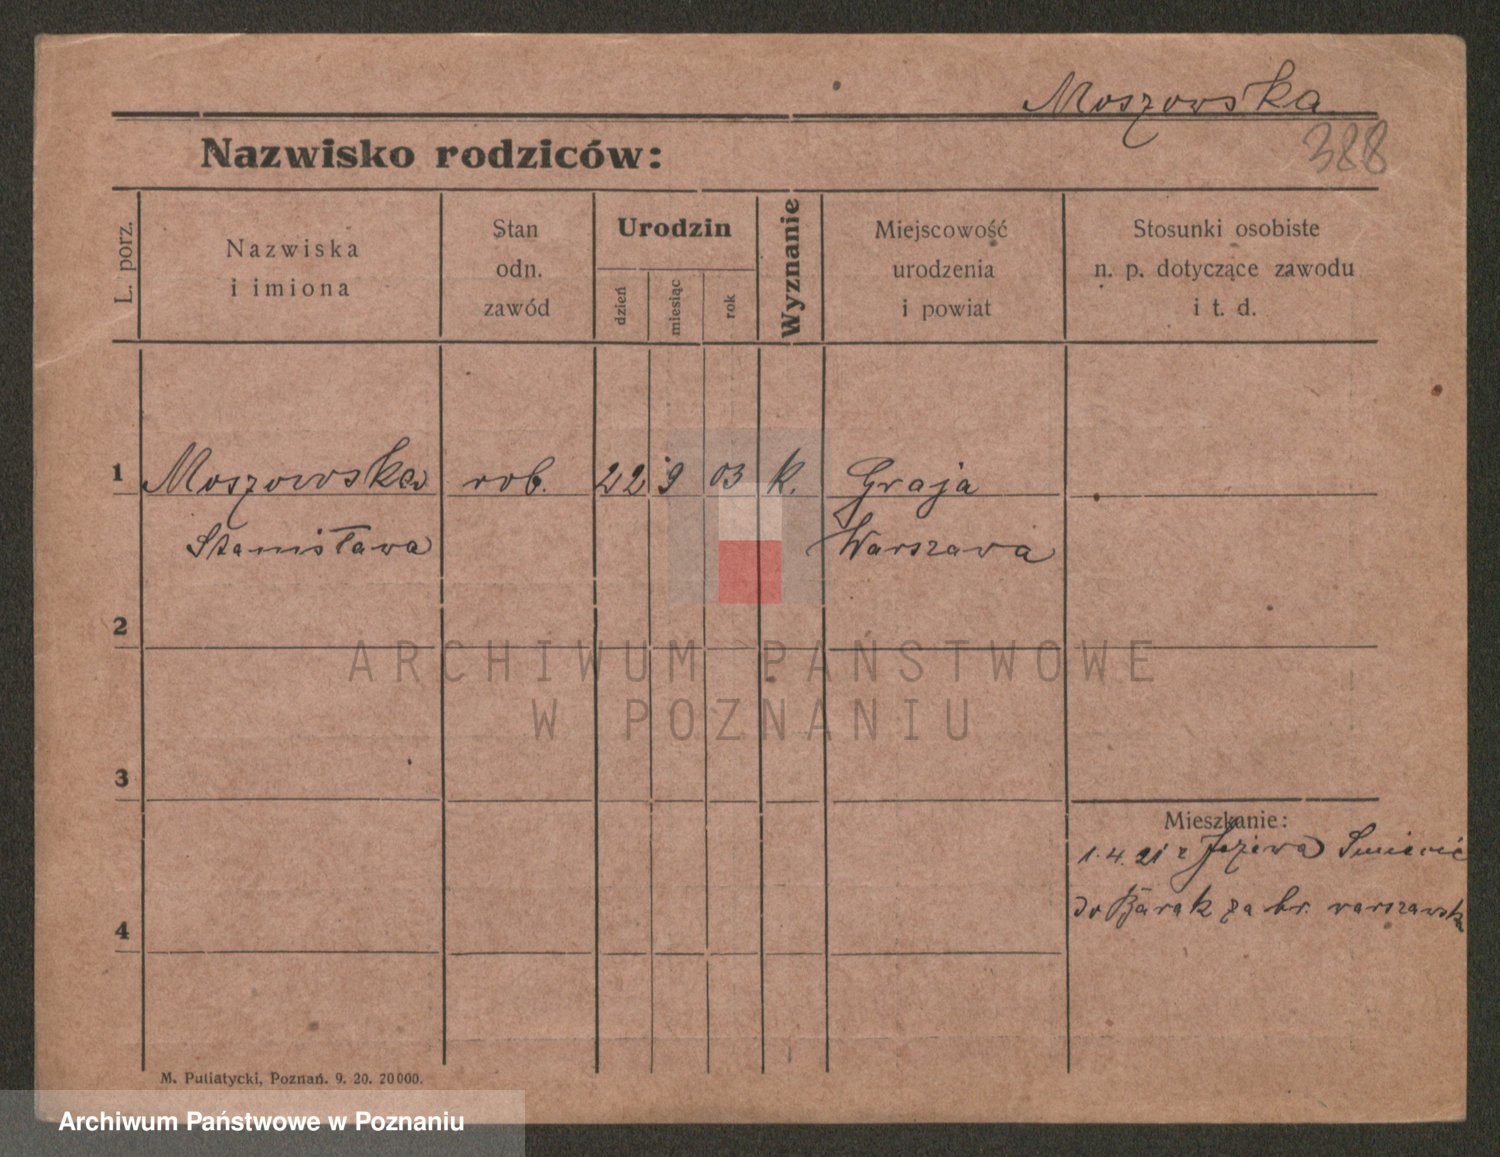 Moszowska
388
Nazwisko rodziców:
L. porz.
Nazwiska
i imiona
Stan
odn.
zawód
Urodzin
dzień
miesiąc
rok
Wyznanie
Miejscowość
urodzenia
i powiat
Stosunki osobiste
n. p. dotyczące zawodu
i t. d.
1 Moszowska rob. 22 9 03 K. Graja
Stanisława Warszawa
2
ARCHIWUM PAŃSTWOWE
W POZNANIU
3
Mieszkanie:
1.4.21 z
4
do Barak za br. warszawsk
M. Putiatycki, Poznań. 9. 20. 20000.
Archiwum Państwowe w Poznaniu